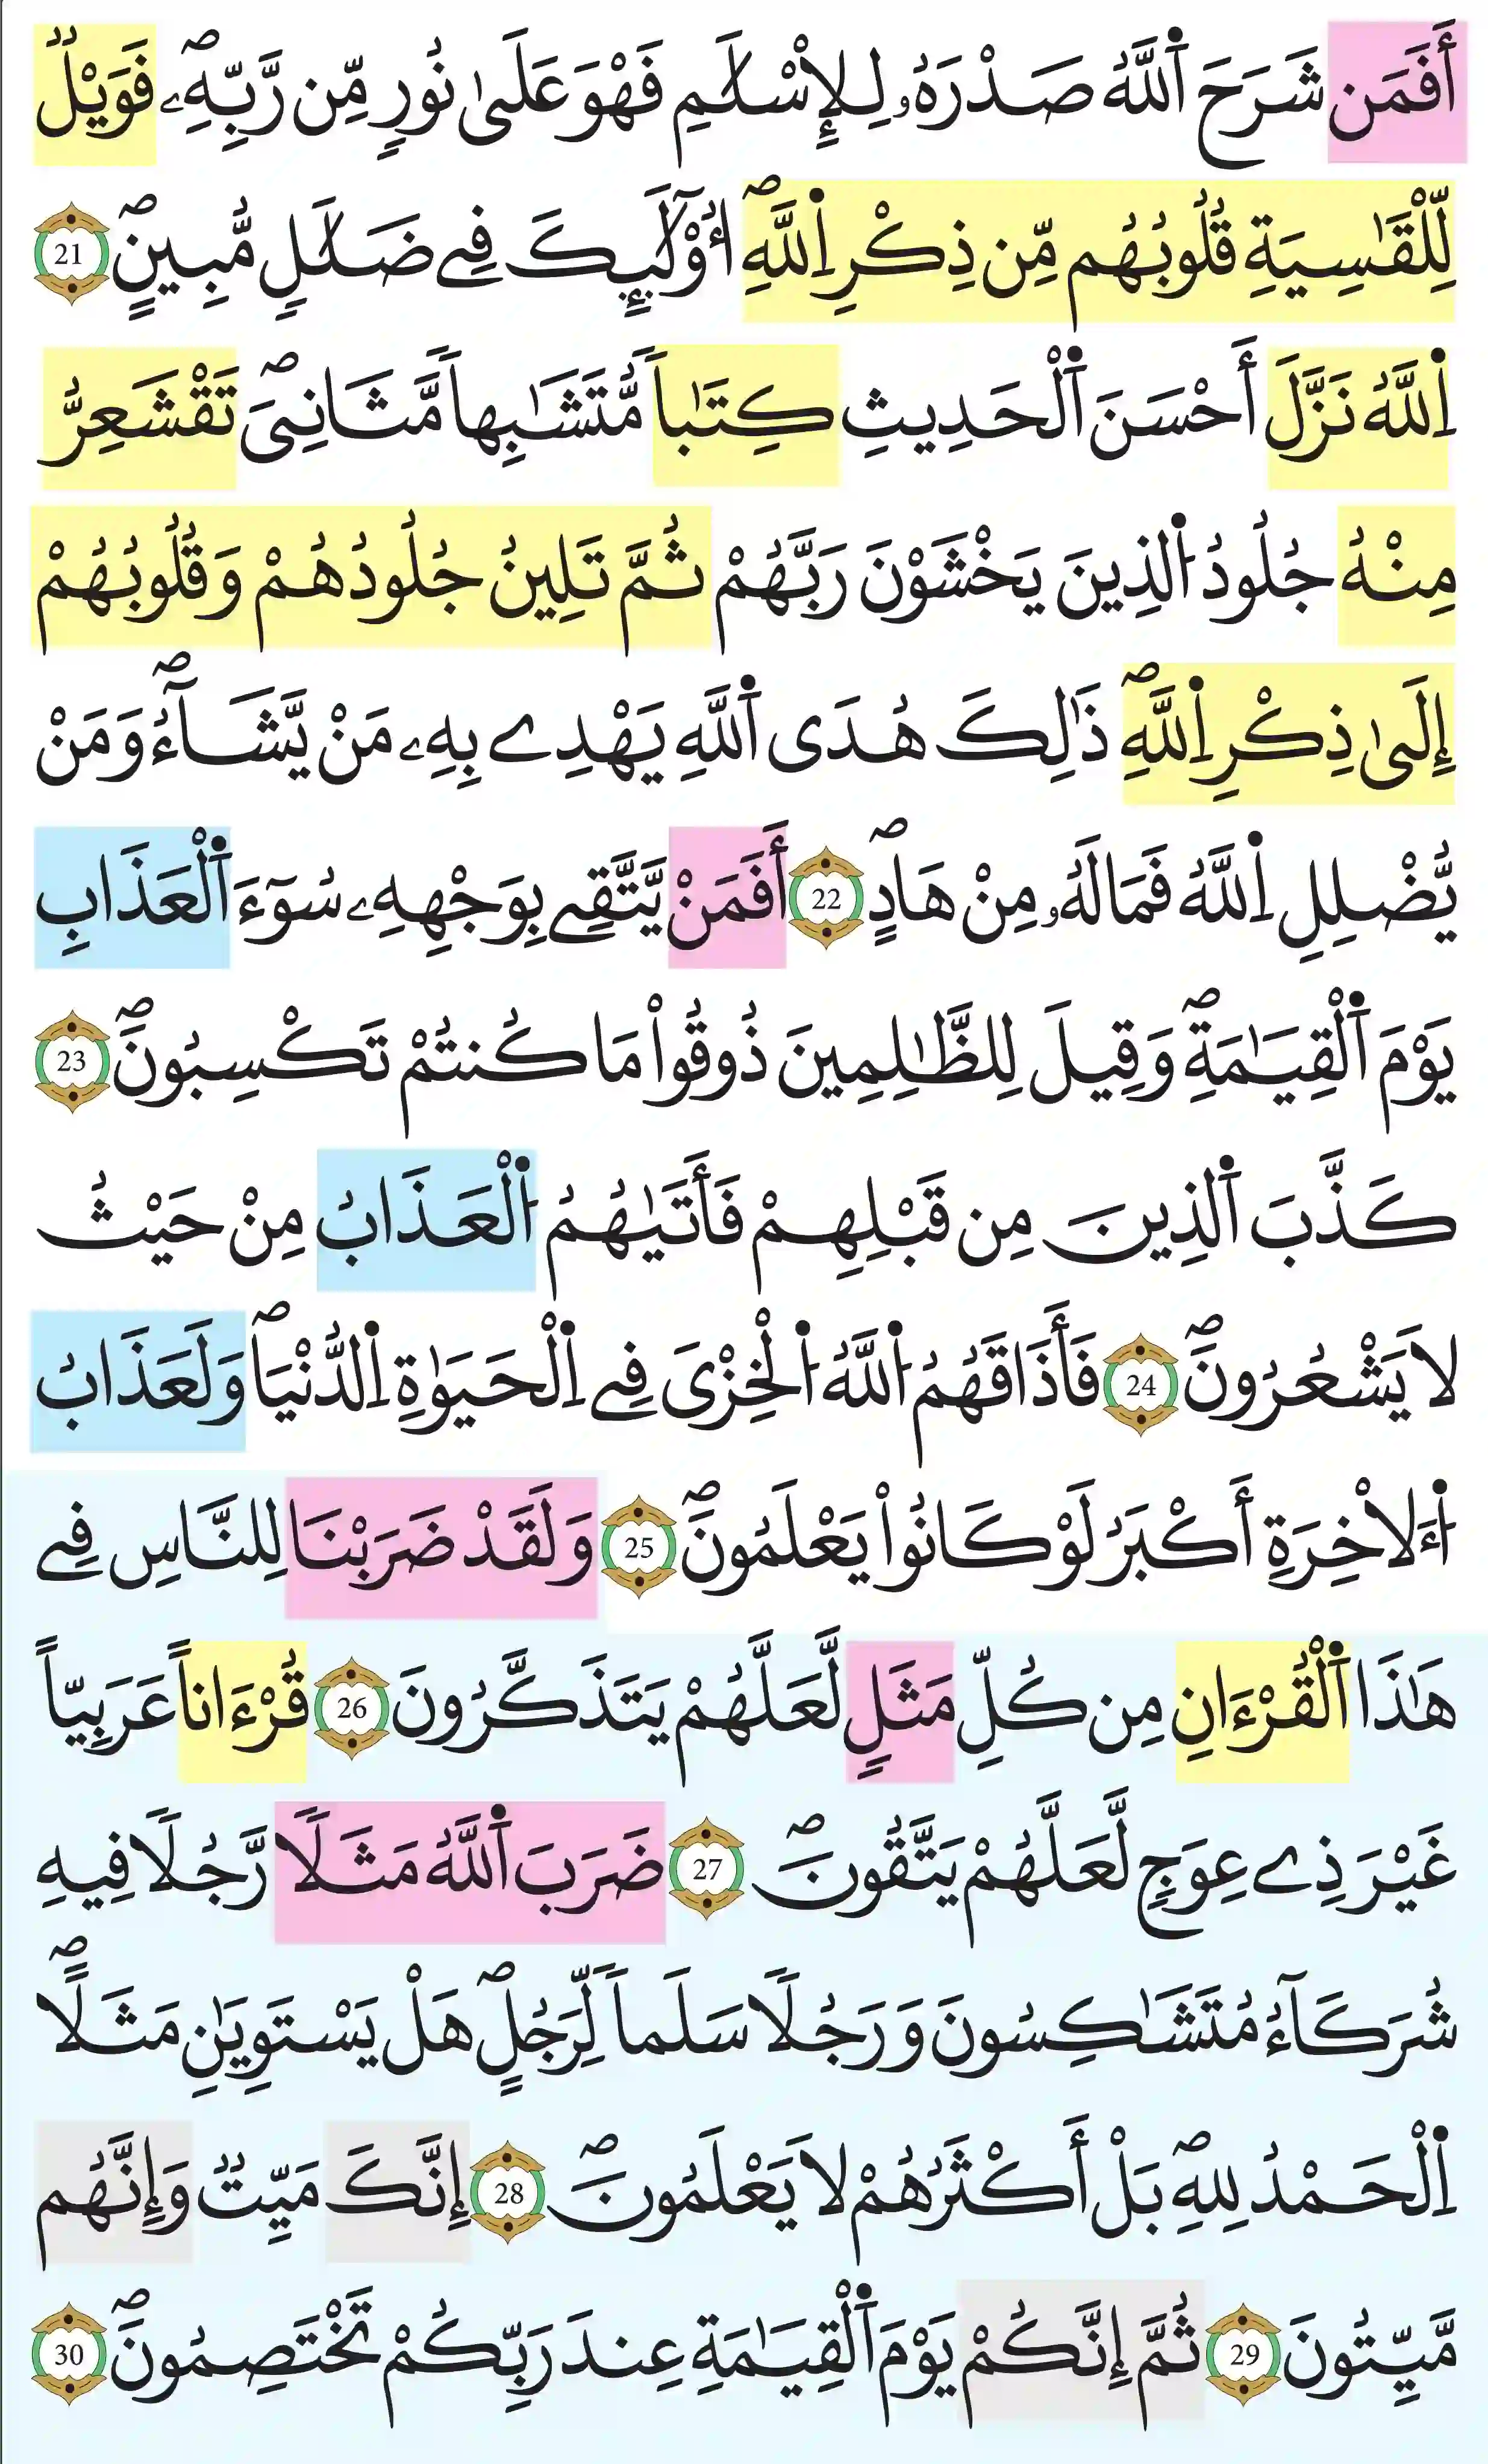 أَفَمَن شَرَحَ اَ۬للَّهُ صَدْرَهُۥ لِلإِسْلَٰمِ فَهْوَ عَلَىٰ نُورٖ مِّن رَّبِّهِۦۖ فَوَيْلٞ
لِّلْقَٰسِيَةِ قُلُوبُهُم مِّن ذِكْرِ اِ۬للَّهِۖ أُوْلَٰٓئِكَ فِے ضَلَٰلٖ مُّبِينٍۖ 21
اِ۬للَّهُ نَزَّلَ أَحْسَنَ اَ۬لْحَدِيثِ كِتَٰباٗ مُّتَشَٰبِهاٗ مَّثَانِيَۖ تَقْشَعِرُّ
مِنْهُ جُلُودُ اُ۬لذِينَ يَخْشَوْنَ رَبَّهُمْ ثُمَّ تَلِينُ جُلُودُهُمْ وَقُلُوبُهُمْ
إِلَىٰ ذِكْرِ اِ۬للَّهِۖ ذَٰلِكَ هُدَى اَ۬للَّهِ يَهْدِے بِهِۦ مَنْ يَّشَآءُۖ وَمَنْ
يُّضْلِلِ اِ۬للَّهُ فَمَا لَهُۥ مِنْ هَادٍۖ 22 أَفَمَنْ يَّتَّقِے بِوَجْهِهِۦ سُوٓءَ اَ۬لْعَذَابِ
يَوْمَ اَ۬لْقِيَٰمَةِۖ وَقِيلَ لِلظَّٰلِمِينَ ذُوقُواْ مَا كُنتُمْ تَكْسِبُونَۖ 23
كَذَّبَ اَ۬لذِينَ مِن قَبْلِهِمْ فَأَتَىٰهُمُ اُ۬لْعَذَابُ مِنْ حَيْثُ
لَا يَشْعُرُونَۖ 24 فَأَذَاقَهُمُ اُ۬للَّهُ اُ۬لْخِزْيَ فِے اِ۬لْحَيَوٰةِ اِ۬لدُّنْيَاۖ وَلَعَذَابُ
اُ۬لَاخِرَةِ أَكْبَرُ لَوْ كَانُواْ يَعْلَمُونَۖ 25 وَلَقَدْ ضَرَبْنَا لِلنَّاسِ فِے
هَٰذَا اَ۬لْقُرْءَانِ مِن كُلِّ مَثَلٖ لَّعَلَّهُمْ يَتَذَكَّرُونَ 26 قُرْءَاناً عَرَبِيّاً
غَيْرَ ذِے عِوَجٖ لَّعَلَّهُمْ يَتَّقُونَۖ 27 ضَرَبَ اَ۬للَّهُ مَثَلٗا رَّجُلٗا فِيهِ
شُرَكَآءُ مُتَشَٰكِسُونَ وَرَجُلٗا سَلَماٗ لِّرَجُلٍۖ هَلْ يَسْتَوِيَٰنِ مَثَلًاۖ
اِ۬لْحَمْدُ لِلهِۖ بَلْ أَكْثَرُهُمْ لَا يَعْلَمُونَۖ 28 إِنَّكَ مَيِّتٞ وَإِنَّهُم
مَّيِّتُونَ 29 ثُمَّ إِنَّكُمْ يَوْمَ اَ۬لْقِيَٰمَةِ عِندَ رَبِّكُمْ تَخْتَصِمُونَۖ 30